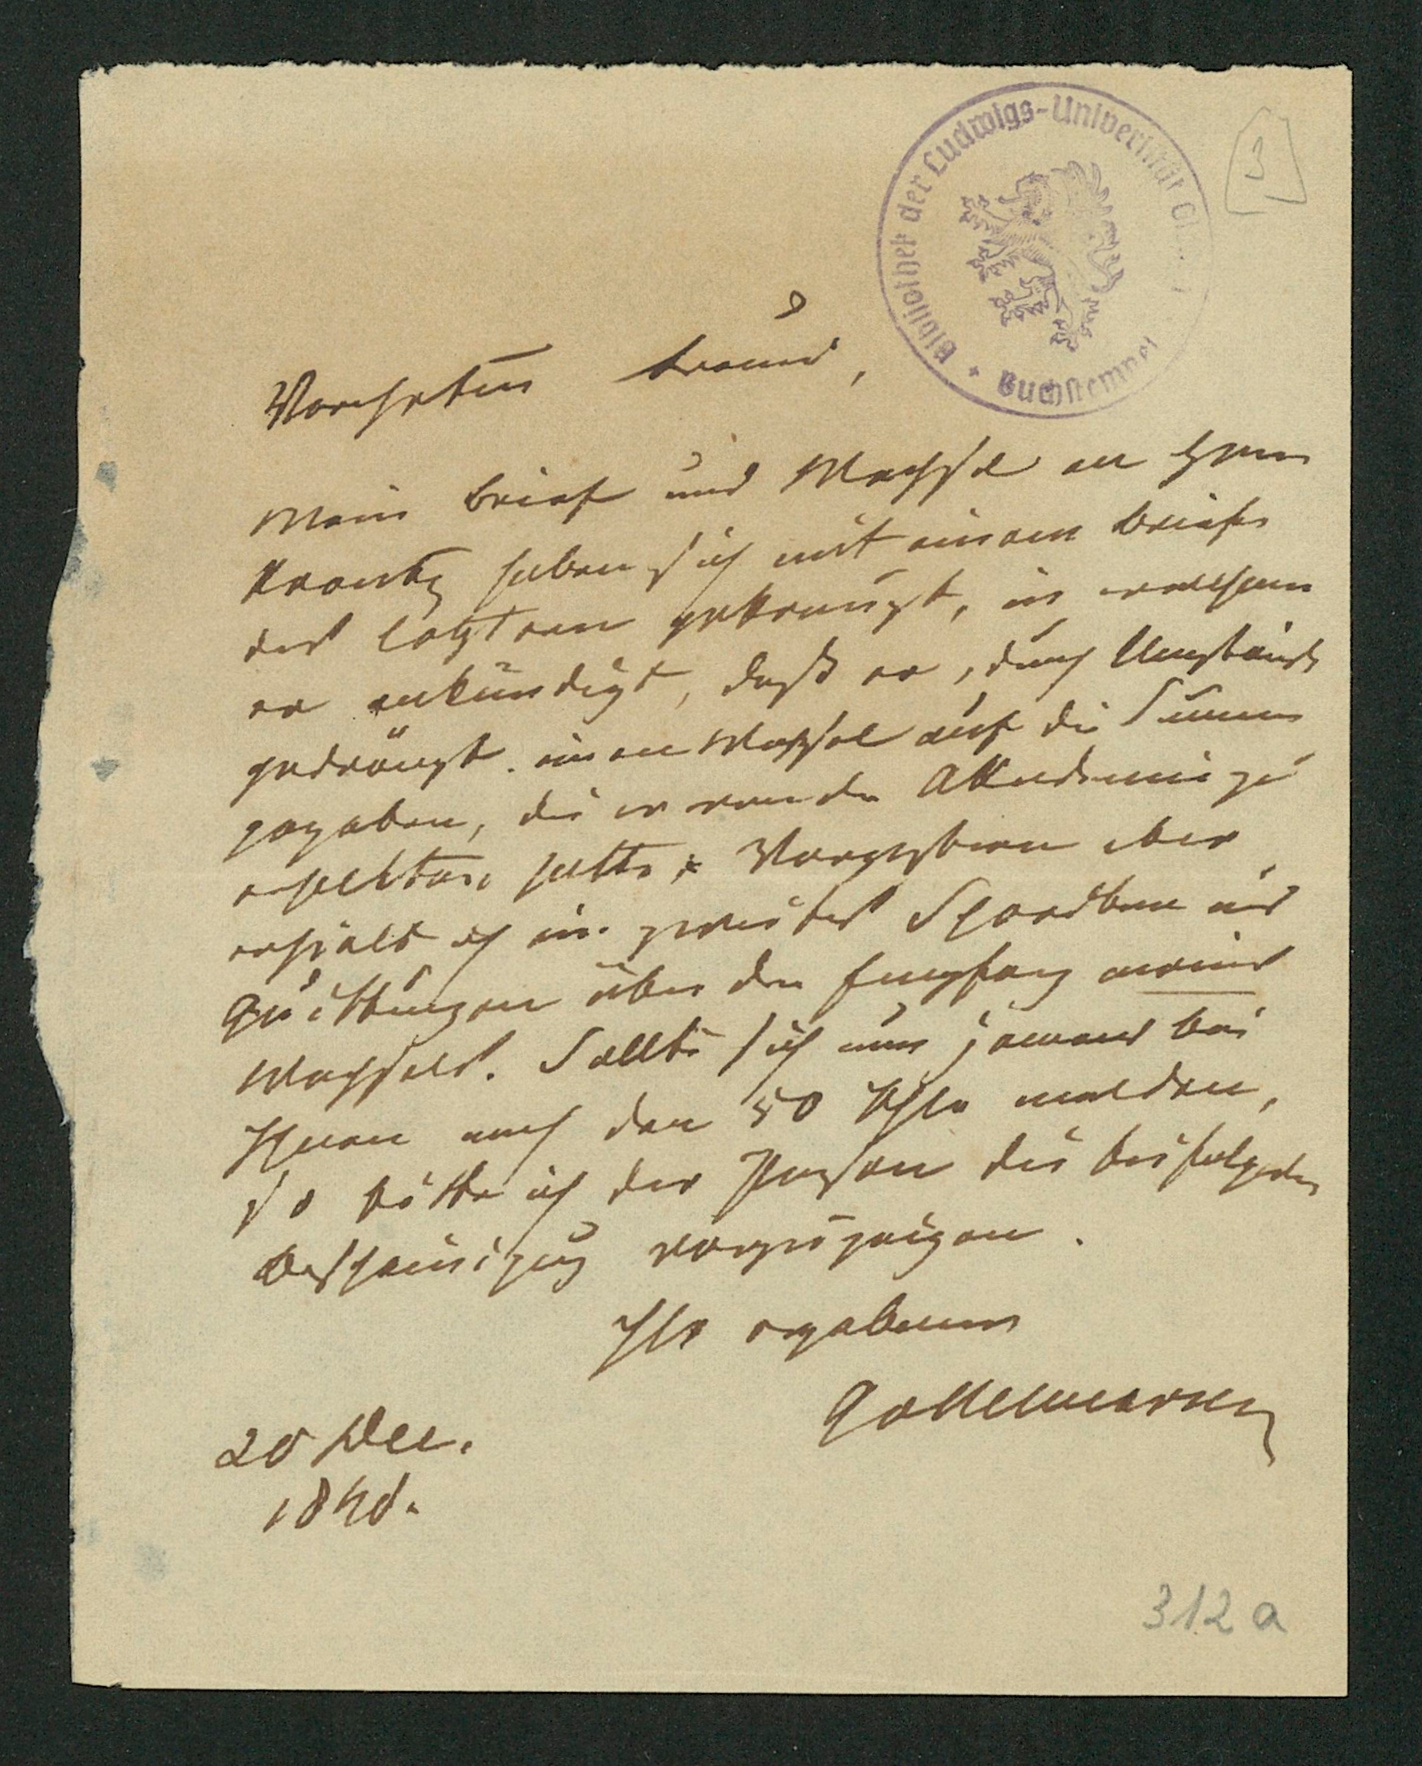 Bibliothek der Ludwigs-Universität
Buchstempel
3
Verehrter Freund,
Mein Brief und Wechsel an Herrn
Krantz haben sich mit einem Briefe
des letztern gekreuzt, in welchem
er ankündigt, daß er, durch Umstände
gedrängt. einen Wechsel auf die Summe
gegeben, die er von der Akademie zu
erhalten hatte. Vorgestern aber
erhielt ich ein zweites Schreiben mit
Quittungen über den Empfang meines
Wechsels. Sollte sich nun jemand bei
Ihnen nach den 50 Thlr melden,
so bitte ich der Person die beifolgende
Bescheinigung vorzuzeigen.
Ihr ergebener
20 Dec.
312 a